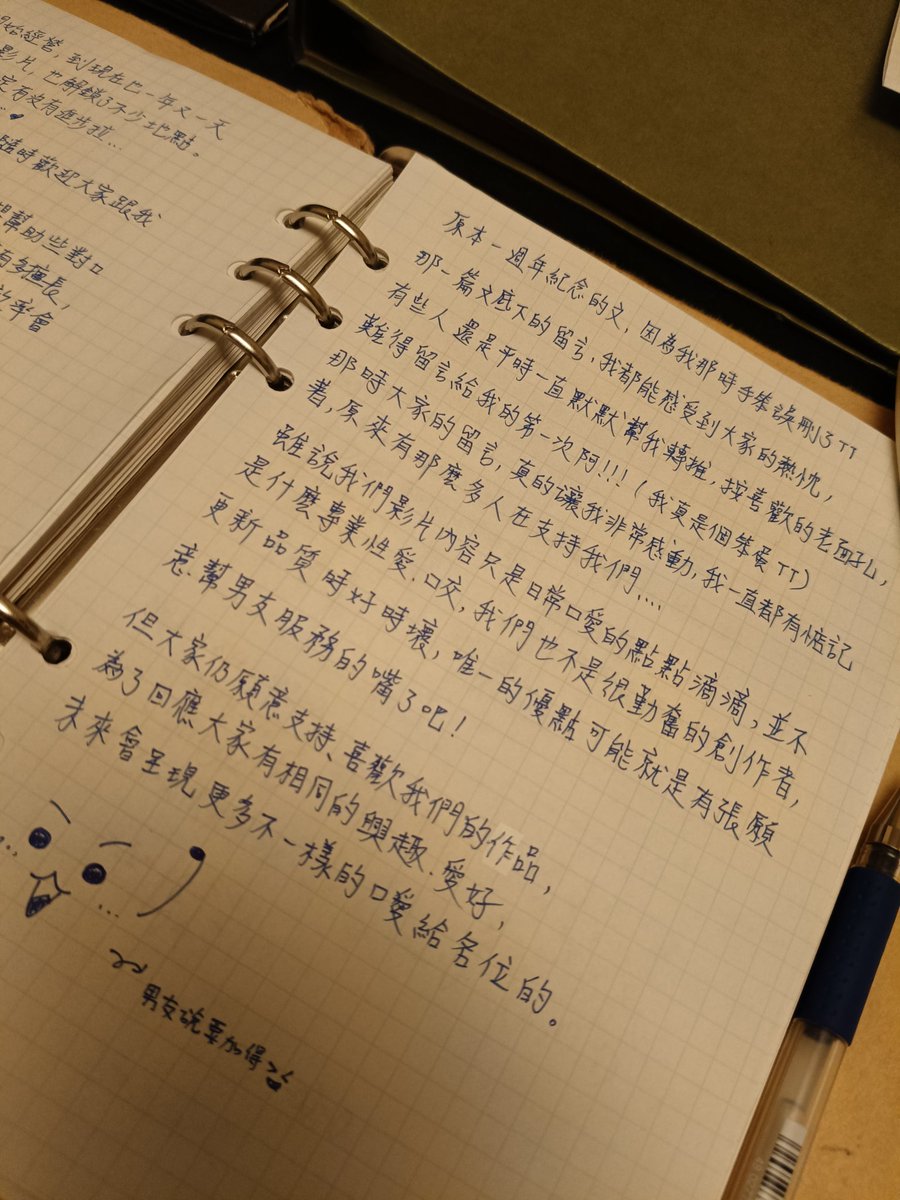 開始經營, 到現在已一年又一天
影片, 也解鎖了不少地點。
定有沒有進步拉...
隨時歡迎大家跟我
幫助些對口
有多擅長,
效率會
原本一週年紀念的文, 因為我那時手殘誤刪了TT
那一篇文底下的留言, 我都能感受到大家的熱忱,
有些人還是平時一直默默幫我轉推, 按喜歡的老面孔,
難得留言給我的第一次阿!!! (我真是個笨蛋TT)
那時大家的留言, 真的讓我非常感動, 我一直都有惦記
著, 原來有那麼多人在支持我們....
雖說我們影片內容只是日常口愛的點點滴滴, 並不
是什麼專業性愛.口交, 我們也不是很勤奮的創作者,
更新品質時好時壞, 唯一的優點可能就是有張願
意幫男友服務的嘴了吧!
但大家仍願意支持、喜歡我們的作品,
為了回應大家有相同的興趣.愛好,
未來會呈現更多不一樣的口愛給各位的。
...
男友說要加得